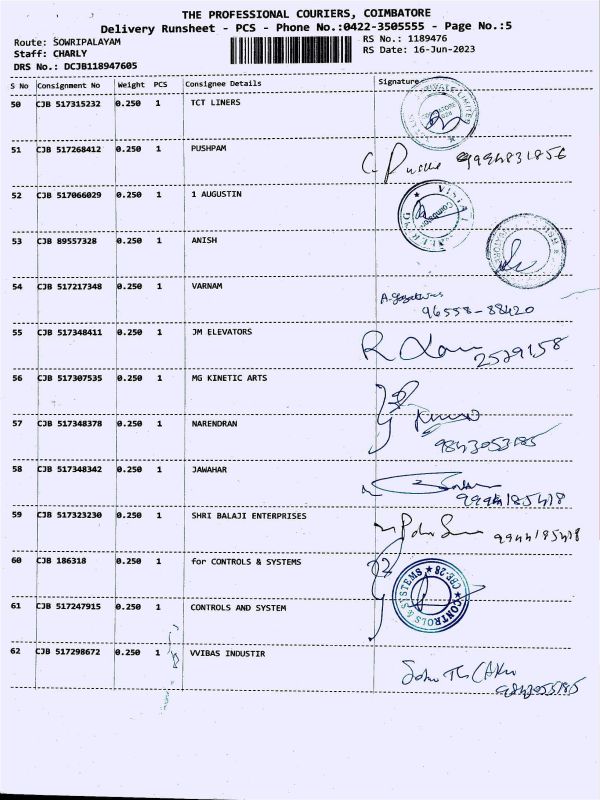 THE PROFESSIONAL COURIERS, COIMBATORE
Delivery Runsheet - PCS - Phone No.:0422-3505555 - Page No.:5
Route: SOWRIPALAYAM
RS No.: 1189476
Staff: CHARLY
RS Date: 16-Jun-2023
DRS No.: DCJB118947605
S No Consignment No Weight PCS Consignee Details Signature
50 CJB 517315232 0.250 1 TCT LINERS
51 CJB 517268412 0.250 1 PUSHPAM
9994831856
52 CJB 517066029 0.250 1 1 AUGUSTIN
53 CJB 89557328 0.250 1 ANISH
54 CJB 517217348 0.250 1 VARNAM
96558-88420
55 CJB 517348411 0.250 1 JM ELEVATORS
2529158
56 CJB 517307535 0.250 1 MG KINETIC ARTS
57 CJB 517348378 0.250 1 NARENDRAN
9843053185
58 CJB 517348342 0.250 1 JAWAHAR
9994185418
59 CJB 517323230 0.250 1 SHRI BALAJI ENTERPRISES
9944185418
60 CJB 186318 0.250 1 for CONTROLS & SYSTEMS
CONTROLS & SYSTEMS ★ CBE-28 ★
61 CJB 517247915 0.250 1 CONTROLS AND SYSTEM
62 CJB 517298672 0.250 1 VVIBAS INDUSTIR